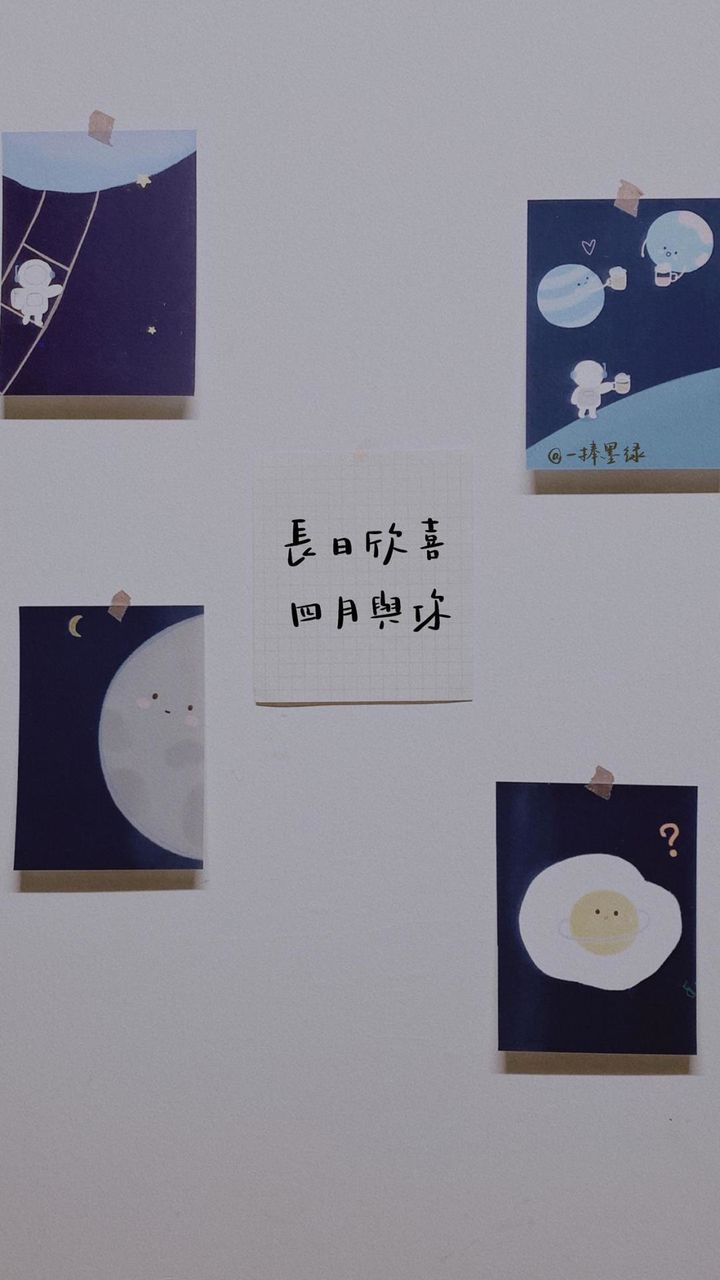 @一捧墨绿
長日欣喜
四月與你
?